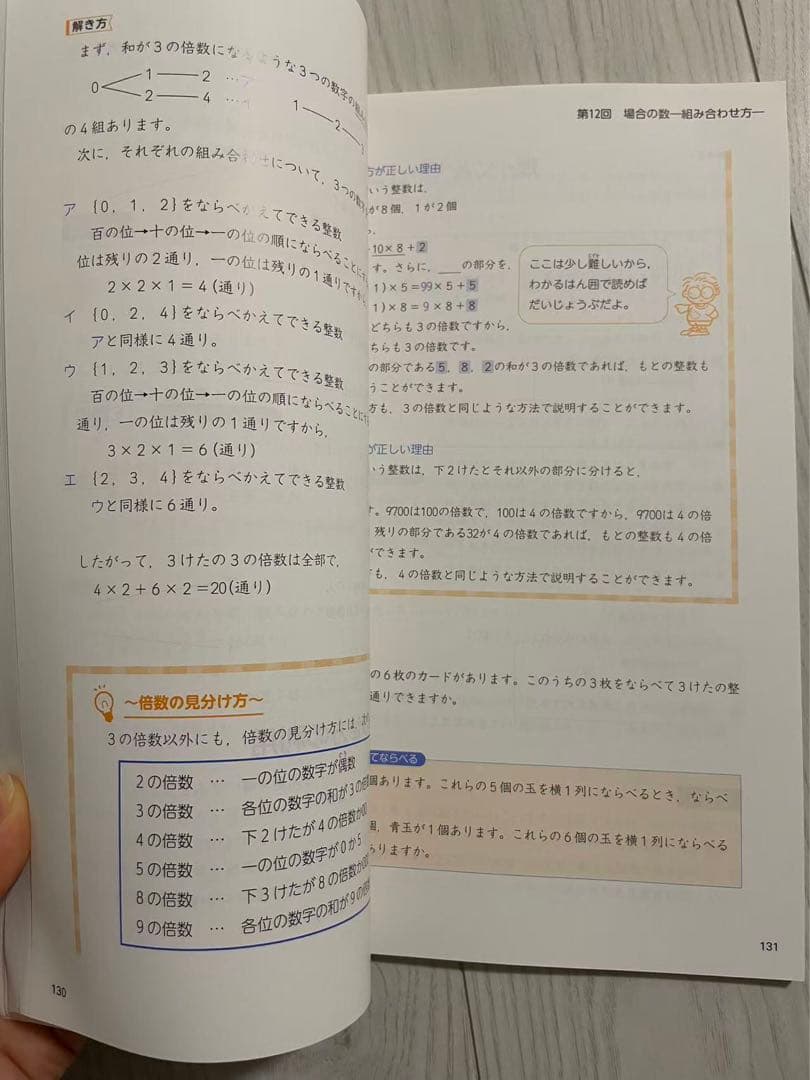 解き方
まず，和が3の倍数にな
うな3つの数字の
0 1 2 …
2 4 …
1 2
の4組あります。
次に，それぞれの組み合わせについて，3つの数
ア {0，1，2}をならべかえてできる整数
百の位→十の位→一の位の順にならべることに
位は残りの2通り，一の位は残りの1通りですから
2×2×1＝4(通り)
イ {0，2，4}をならべかえてできる整数
アと同様に4通り。
ウ {1，2，3}をならべかえてできる整数
百の位→十の位→一の位の順にならべることに
通り，一の位は残りの1通りですから，
3×2×1＝6(通り)
エ {2，3，4}をならべかえてできる整数
ウと同様に6通り。
したがって，3けたの3の倍数は全部で，
4×2＋6×2＝20(通り)
～倍数の見分け方～
3の倍数以外にも，倍数の見分け方には，
2の倍数 … 一の位の数字が偶数
3の倍数 … 各位の数字の和が3の倍
4の倍数 … 下2けたが4の倍数か
5の倍数 … 一の位の数字が0か5
8の倍数 … 下3けたが8の倍数か
9の倍数 … 各位の数字の和が9の
130
第12回 場合の数―組み合わせ方―
方が正しい理由
いう整数は，
が8個，1が2個
10×8＋2
す。さらに，＿の部分を，
1)×5＝99×5＋5
1)×8＝9×8＋8
どちらも3の倍数ですから，
ちらも3の倍数です。
の部分である5，8，2の和が3の倍数であれば，もとの整数も
うことができます。
方も，3の倍数と同じような方法で説明することができます。
ここは少し難しいから，
わかるはん囲で読めば
だいじょうぶだよ。
が正しい理由
いう整数は，下2けたとそれ以外の部分に分けると，
す。9700は100の倍数で，100は4の倍数ですから，9700は4の倍
残りの部分である32が4の倍数であれば，もとの整数も4の倍
ができます。
も，4の倍数と同じような方法で説明することができます。
の6枚のカードがあります。このうちの3枚をならべて3けたの整
通りできますか。
てならべる
個あります。これらの5個の玉を横1列にならべるとき，ならべ
個，青玉が1個あります。これらの6個の玉を横1列にならべる
ありますか。
131